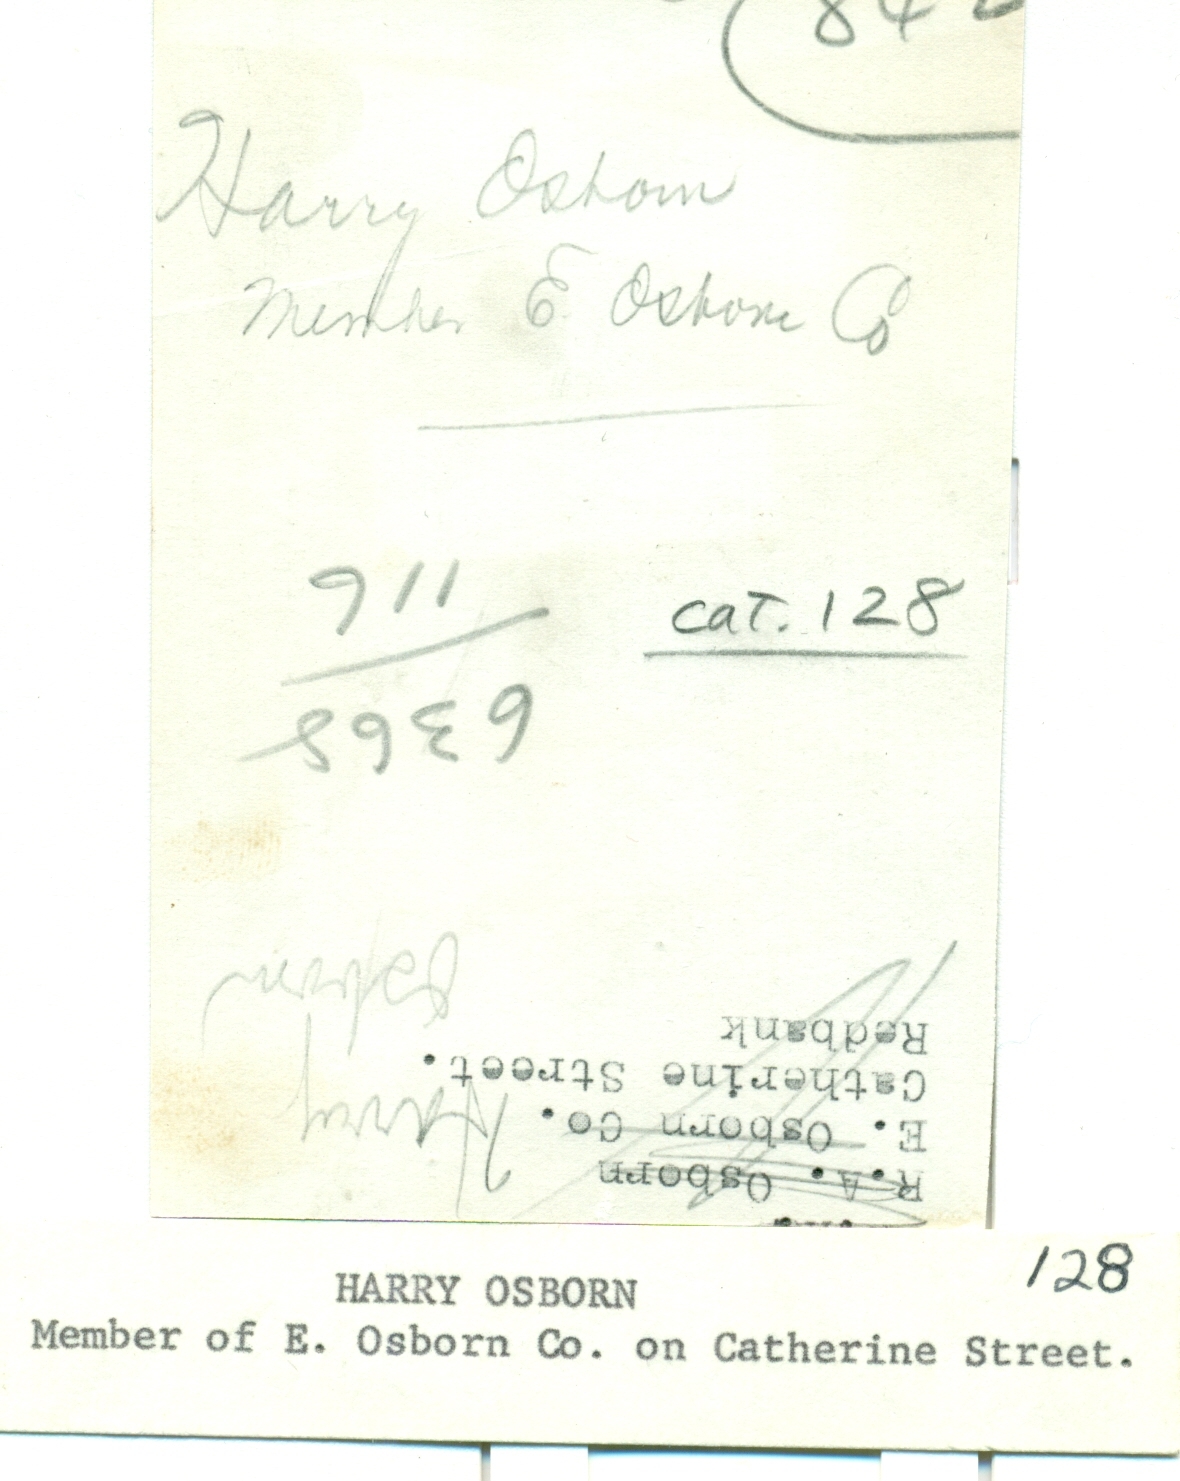 84
Harry Osborn
Member E Osborn Co
cat. 128
116
Harry
Osborn
R.A. Osborn
E. Osborn Co.
Catherine Street.
Redbank
128
HARRY OSBORN
Member of E. Osborn Co. on Catherine Street.